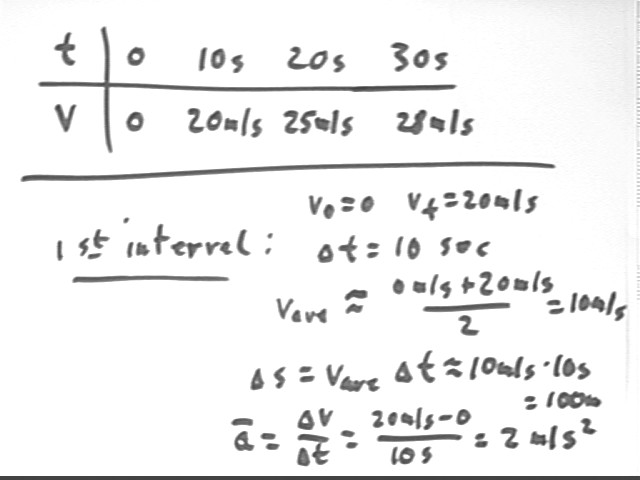 t 0 10s 20s 30s
v 0 20m/s 25m/s 28m/s
v₀=0 v_f=20m/s
1st interval: Δt = 10 sec
v_ave ≈ (0 m/s + 20m/s)/2 = 10m/s
Δs = v_ave Δt ≈ 10m/s · 10s
= 100m
a̅ = Δv/Δt = (20m/s - 0)/10s = 2 m/s²